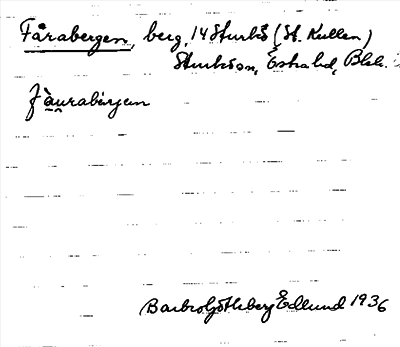 Fårabergen, berg, 14 Sturkö (St. Kullen)
Sturkö sn, Östra hd, Blek.
fàu̯rabärjem
Barbro Götleberg Edlund 1936